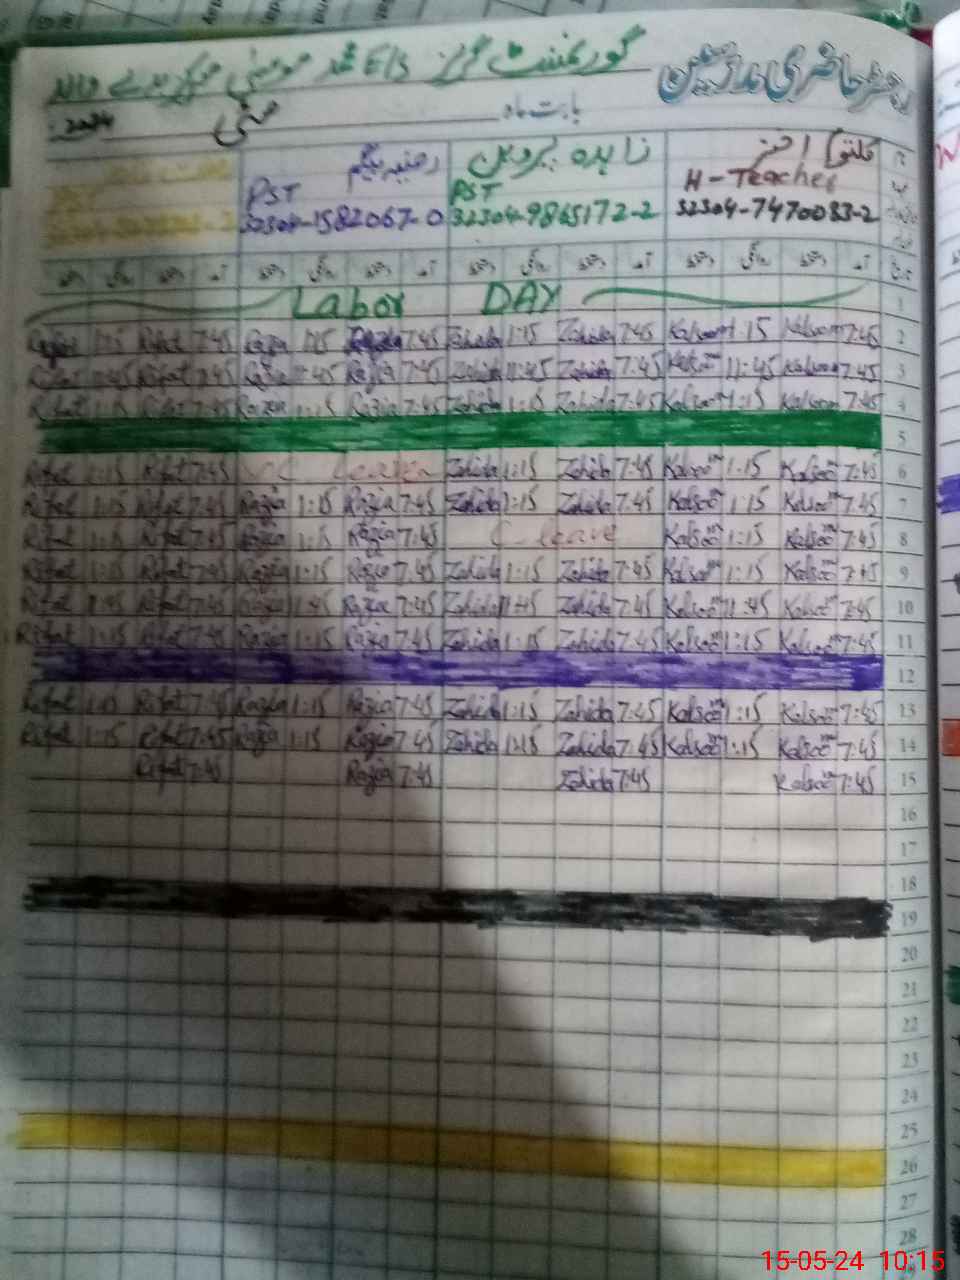 رجسٹر حاضری ملازمین
گورنمنٹ گرلز
بابت ماہ مئی 2024
کلثوم اختر زاہدہ پروین رضیہ بیگم
H-Teacher PST PST
32304-7470083-2 32304-9865172-2 32304-1582067-0
Labor DAY 1
Rifat 1:15 Rifat 7:45 Razia 1:15 Razia 7:45 Zahida 1:15 Zahida 7:45 Kalsoom 1:15 Kalsoom 7:45 2
Rifat 11:45 Rifat 7:45 Razia 11:45 Razia 7:45 Zahida 11:45 Zahida 7:45 Kalsoom 11:45 Kalsoom 7:45 3
Rifat 1:15 Rifat 7:45 Razia 1:15 Razia 7:45 Zahida 1:15 Zahida 7:45 Kalsoom 1:15 Kalsoom 7:45 4
5
Rifat 1:15 Rifat 7:45 C Leave Zahida 1:15 Zahida 7:45 Kalsoom 1:15 Kalsoom 7:45 6
Rifat 1:15 Rifat 7:45 Razia 1:15 Razia 7:45 Zahida 1:15 Zahida 7:45 Kalsoom 1:15 Kalsoom 7:45 7
Rifat 1:15 Rifat 7:45 Razia 1:15 Razia 7:45 C leave Kalsoom 1:15 Kalsoom 7:45 8
Rifat 1:15 Rifat 7:45 Razia 1:15 Razia 7:45 Zahida 1:15 Zahida 7:45 Kalsoom 1:15 Kalsoom 7:45 9
Rifat 11:45 Rifat 7:45 Razia 11:45 Razia 7:45 Zahida 11:45 Zahida 7:45 Kalsoom 11:45 Kalsoom 7:45 10
Rifat 1:15 Rifat 7:45 Razia 1:15 Razia 7:45 Zahida 1:15 Zahida 7:45 Kalsoom 1:15 Kalsoom 7:45 11
12
Rifat 1:15 Rifat 7:45 Razia 1:15 Razia 7:45 Zahida 1:15 Zahida 7:45 Kalsoom 1:15 Kalsoom 7:45 13
Rifat 1:15 Rifat 7:45 Razia 1:15 Razia 7:45 Zahida 1:15 Zahida 7:45 Kalsoom 1:15 Kalsoom 7:45 14
Rifat 7:45 Razia 7:45 Zahida 7:45 Kalsoom 7:45 15
16
17
18
19
20
21
22
23
24
25
26
27
28
15-05-24 10:15